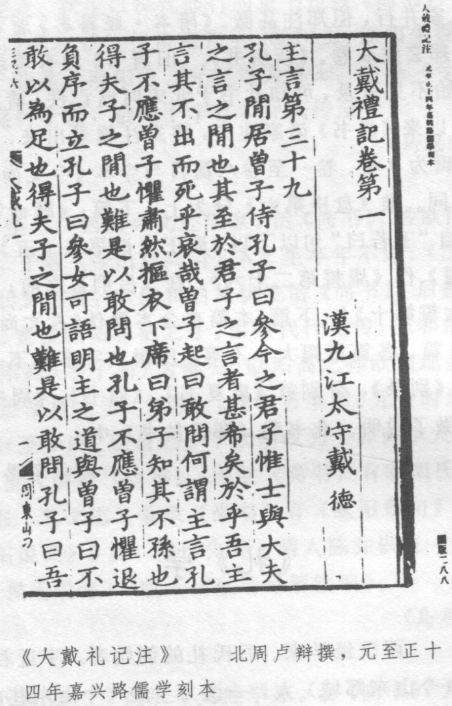 大戴禮記卷第一
漢九江太守戴 德
主言第三十九
孔子閒居曾子侍孔子曰參今之君子惟士與大夫
之言之閒也其至於君子之言者甚希矣於乎吾主
言其不出而死乎哀哉曾子起曰敢問何謂主言孔
子不應曾子懼肅然摳衣下席曰弟子知其不孫也
得夫子之閒也難是以敢問也孔子不應曾子懼退
負序而立孔子曰參女可語明主之道與曾子曰不
敢以為足也得夫子之閒也難是以敢問孔子曰吾
圖版二八八
《大戴礼记注》 北周卢辩撰，元至正十
四年嘉兴路儒学刻本